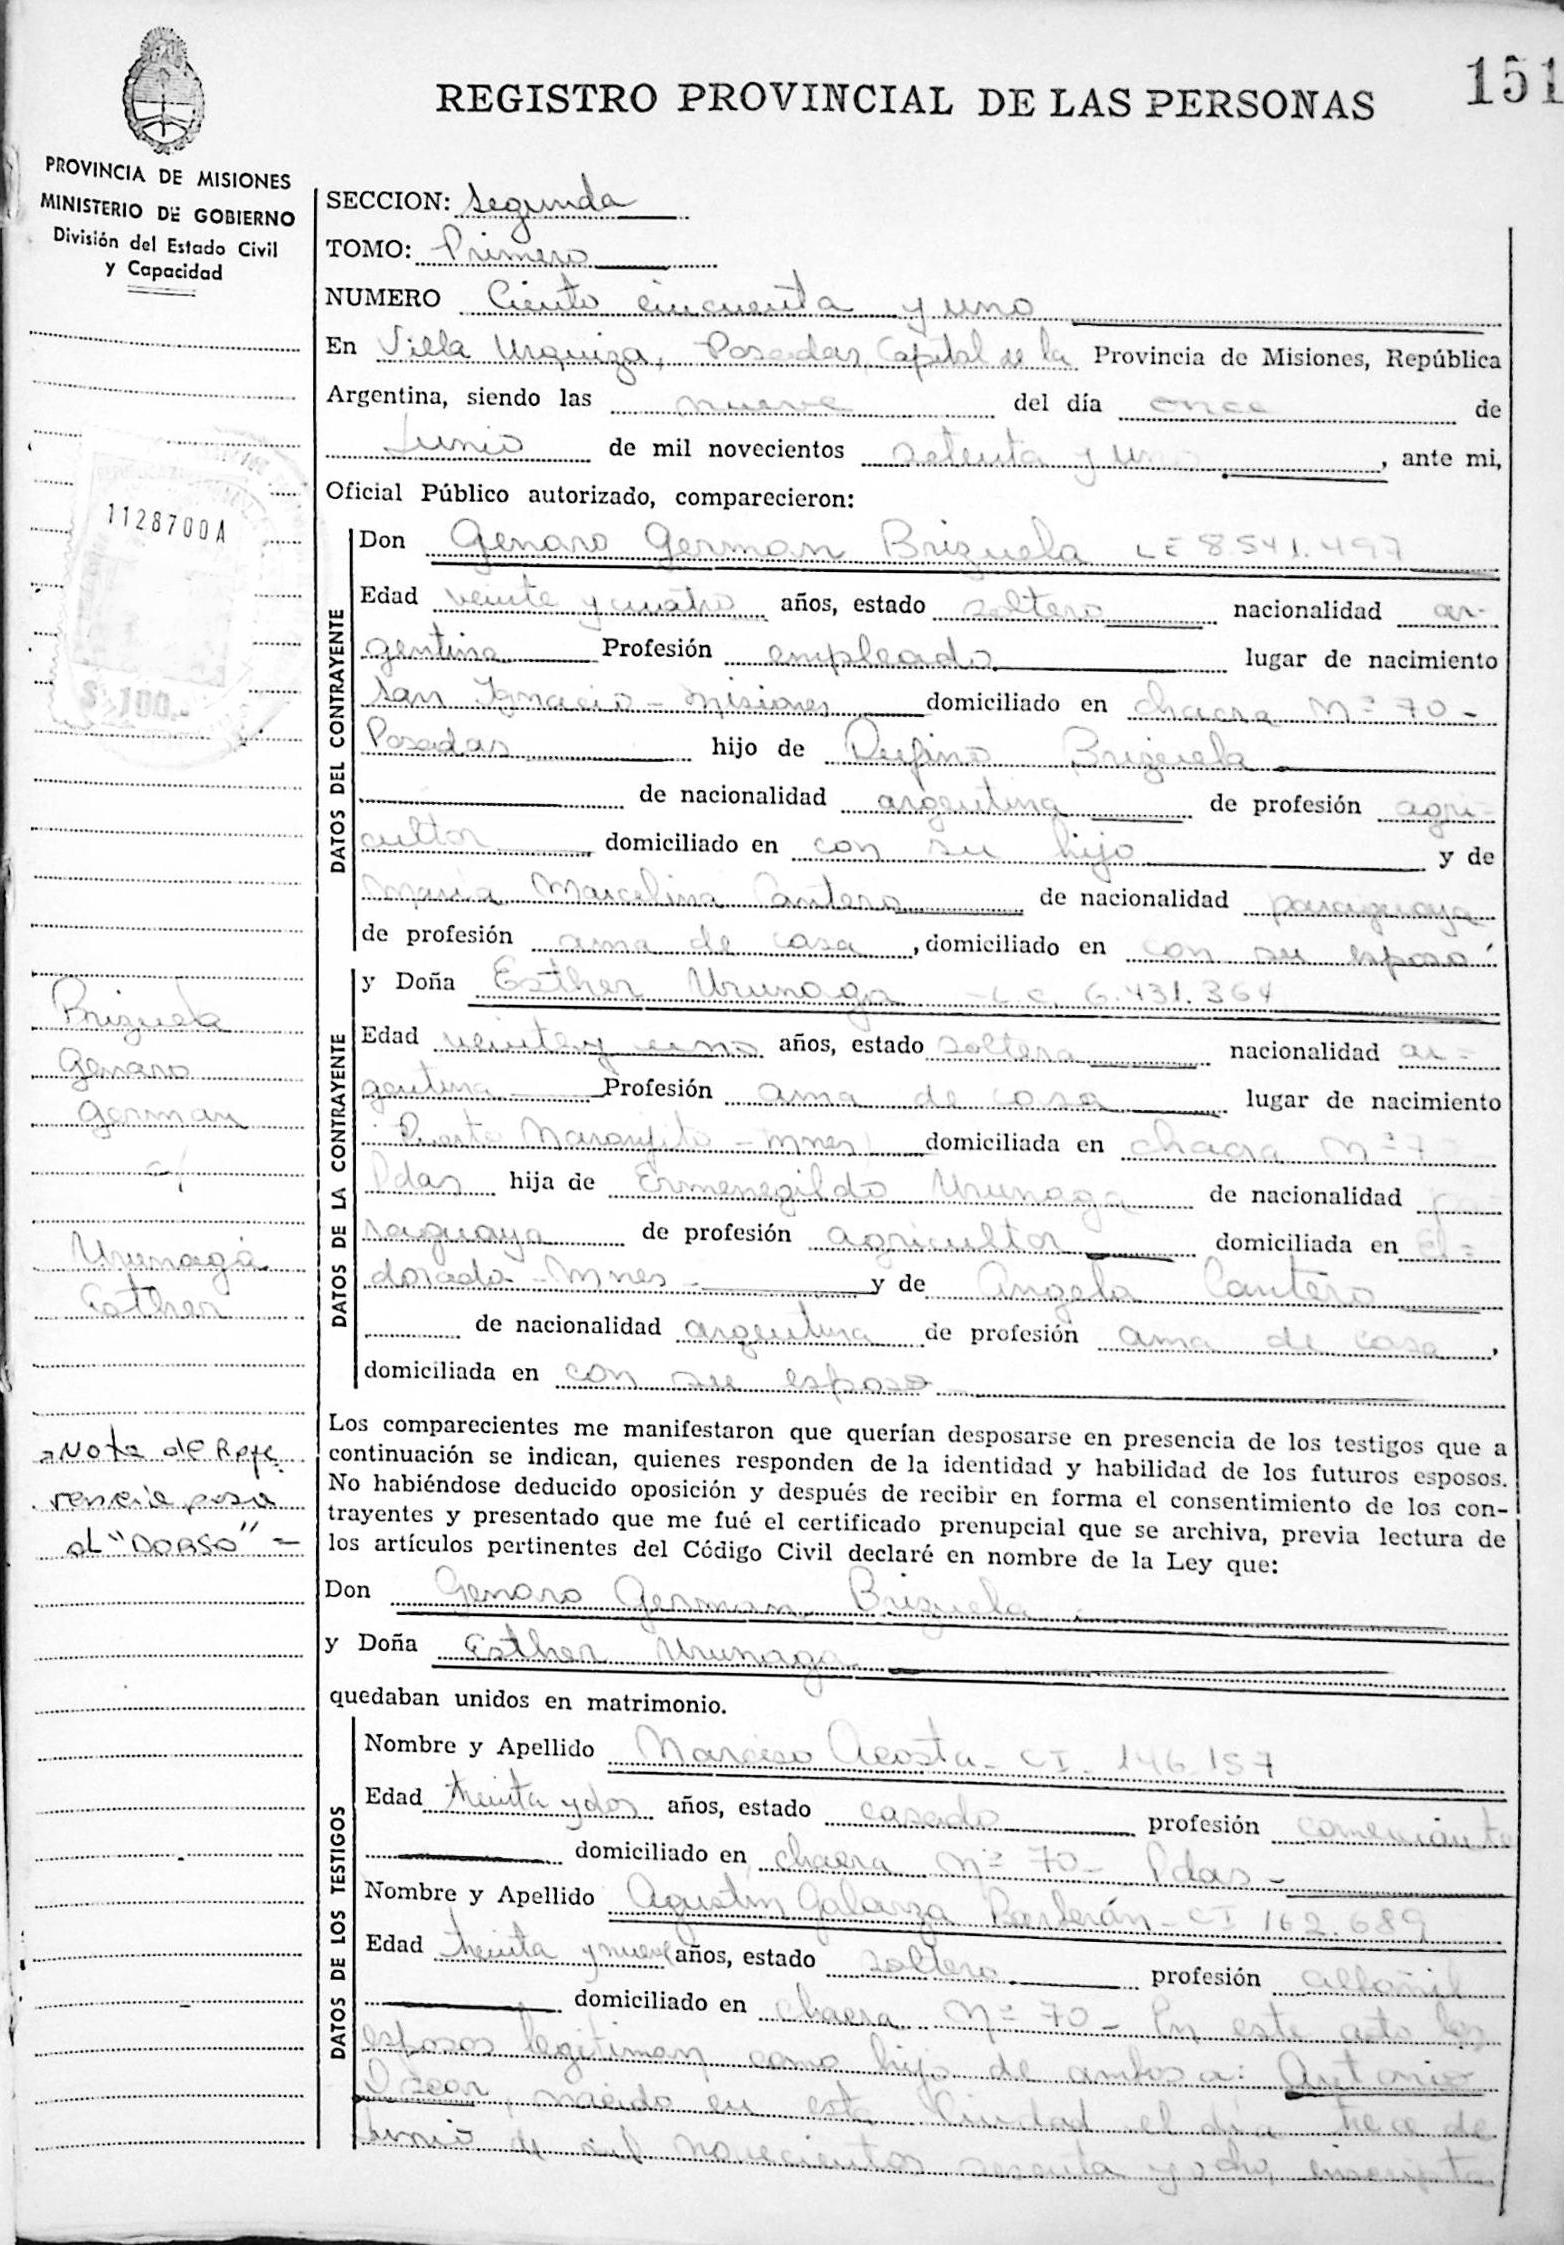 REGISTRO PROVINCIAL DE LAS PERSONAS
151
PROVINCIA DE MISIONES
MINISTERIO DE GOBIERNO
División del Estado Civil
y Capacidad
SECCION: Segunda
TOMO: Primero
NUMERO Ciento cincuenta y uno
En Villa Urquiza, Posadas, Capital de la Provincia de Misiones, República
Argentina, siendo las nueve del día once de
Junio de mil novecientos setenta y uno, ante mi,
Oficial Público autorizado, comparecieron:
1128700A
$ 100.-
DATOS DEL CONTRAYENTE
Don Genaro German Brizuela LE 8.541.497
Edad veinte y cuatro años, estado soltero nacionalidad ar-
gentina Profesión empleado lugar de nacimiento
San Ignacio - Misiones domiciliado en chacra Nº 70 -
Posadas hijo de Rufino Brizuela
de nacionalidad argentina de profesión agri-
cultor domiciliado en con su hijo y de
María Marcelina Cantero de nacionalidad paraguaya
de profesión ama de casa, domiciliado en con su esposo
DATOS DE LA CONTRAYENTE
y Doña Esther Urunaga - L C. 6.431.364
Edad veinte y uno años, estado soltera nacionalidad ar=
gentina Profesión ama de casa lugar de nacimiento
Puerto Naranjito - Mnes domiciliada en chacra Nº 70
Pdas hija de Ermenegildo Urunaga de nacionalidad pa=
raguaya de profesión agricultor domiciliada en El=
dorado - Mnes - y de Angela Cantero
de nacionalidad argentina de profesión ama de casa,
domiciliada en con su esposo
Brizuela
Genaro
German
c/
Urunaga
Esther
Nota de Refe
rencia pasa
al "DORSO" =
Los comparecientes me manifestaron que querían desposarse en presencia de los testigos que a
continuación se indican, quienes responden de la identidad y habilidad de los futuros esposos.
No habiéndose deducido oposición y después de recibir en forma el consentimiento de los con-
trayentes y presentado que me fué el certificado prenupcial que se archiva, previa lectura de
los artículos pertinentes del Código Civil declaré en nombre de la Ley que:
Don Genaro German Brizuela
y Doña Esther Urunaga
quedaban unidos en matrimonio.
DATOS DE LOS TESTIGOS
Nombre y Apellido Narciso Acosta - CI - 146.157
Edad treinta y dos años, estado casado profesión comerciante
domiciliado en chacra Nº 70 - Pdas -
Nombre y Apellido Agustín Galarza Barberán - CI 162.689
Edad treinta y nueve años, estado soltero profesión albañil
domiciliado en chacra Nº 70 - En este acto los
esposos legitiman como hijo de ambos a: Antonio
Oscar, nacido en esta Ciudad el día trece de
Junio de mil novecientos sesenta y ocho, inscripta